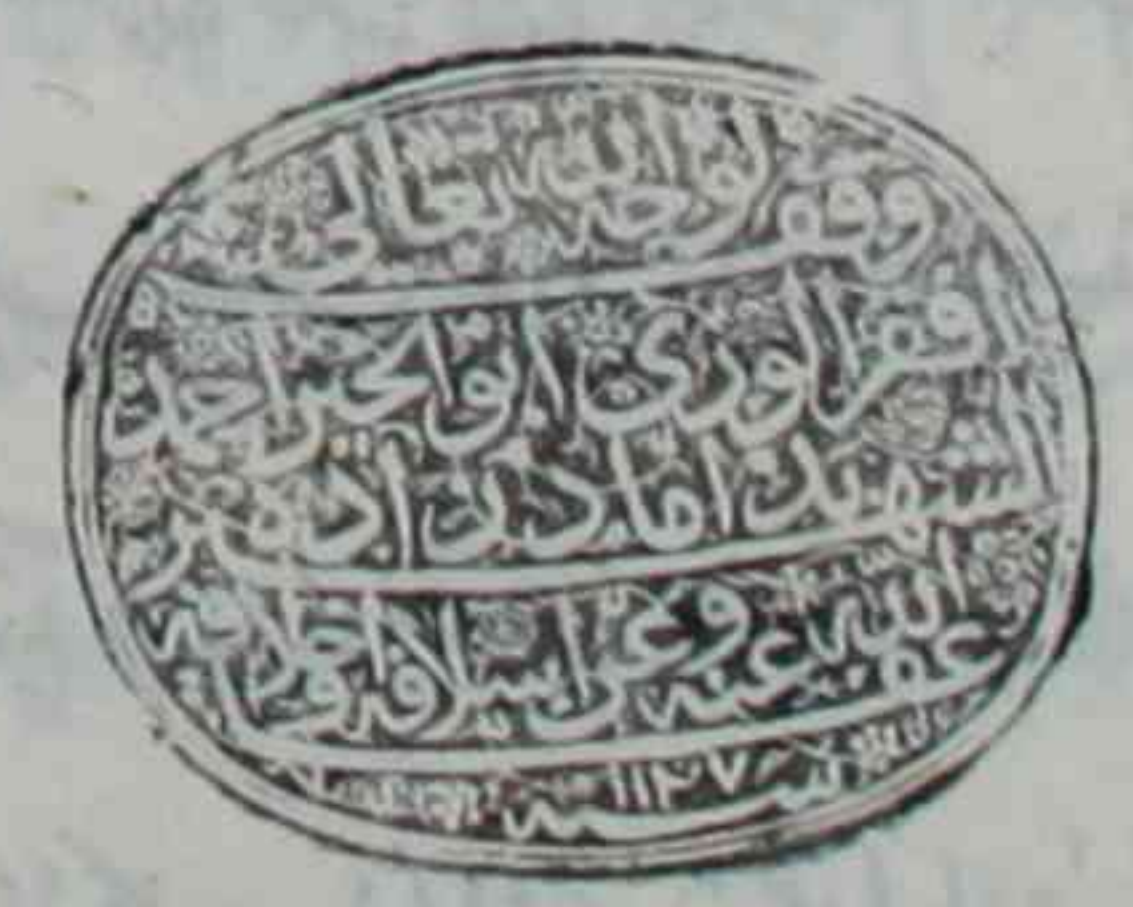 وقف لوجه الله تعالى
افقر الورى ابو الخير احمد
الشهير بداماد زاده غفر
الله عنه وعن اسلافه واخلافه
سنة ١١٤٧